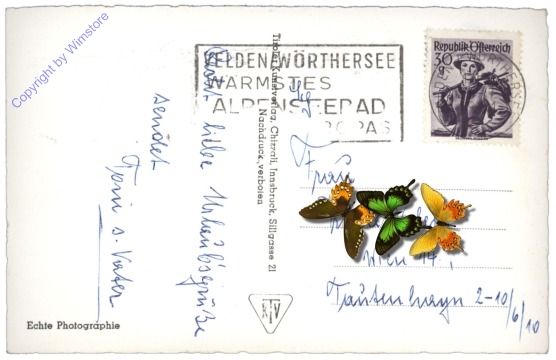 Copyright by Wimstore
VELDEN WÖRTHERSEE
WÄRMSTES
ALPENSEEBAD
ROPAS
Republik Österreich
30
g
Tiroler Kunstverlag, Chizzali, Innsbruck, Sillgasse 21
Nachdruck verboten
liebe Urlaubsgrüße
sendet
Toni s. Vater
Frau
Wien 14.,
Tautenhayn 2-10/6/10
KTV
Echte Photographie